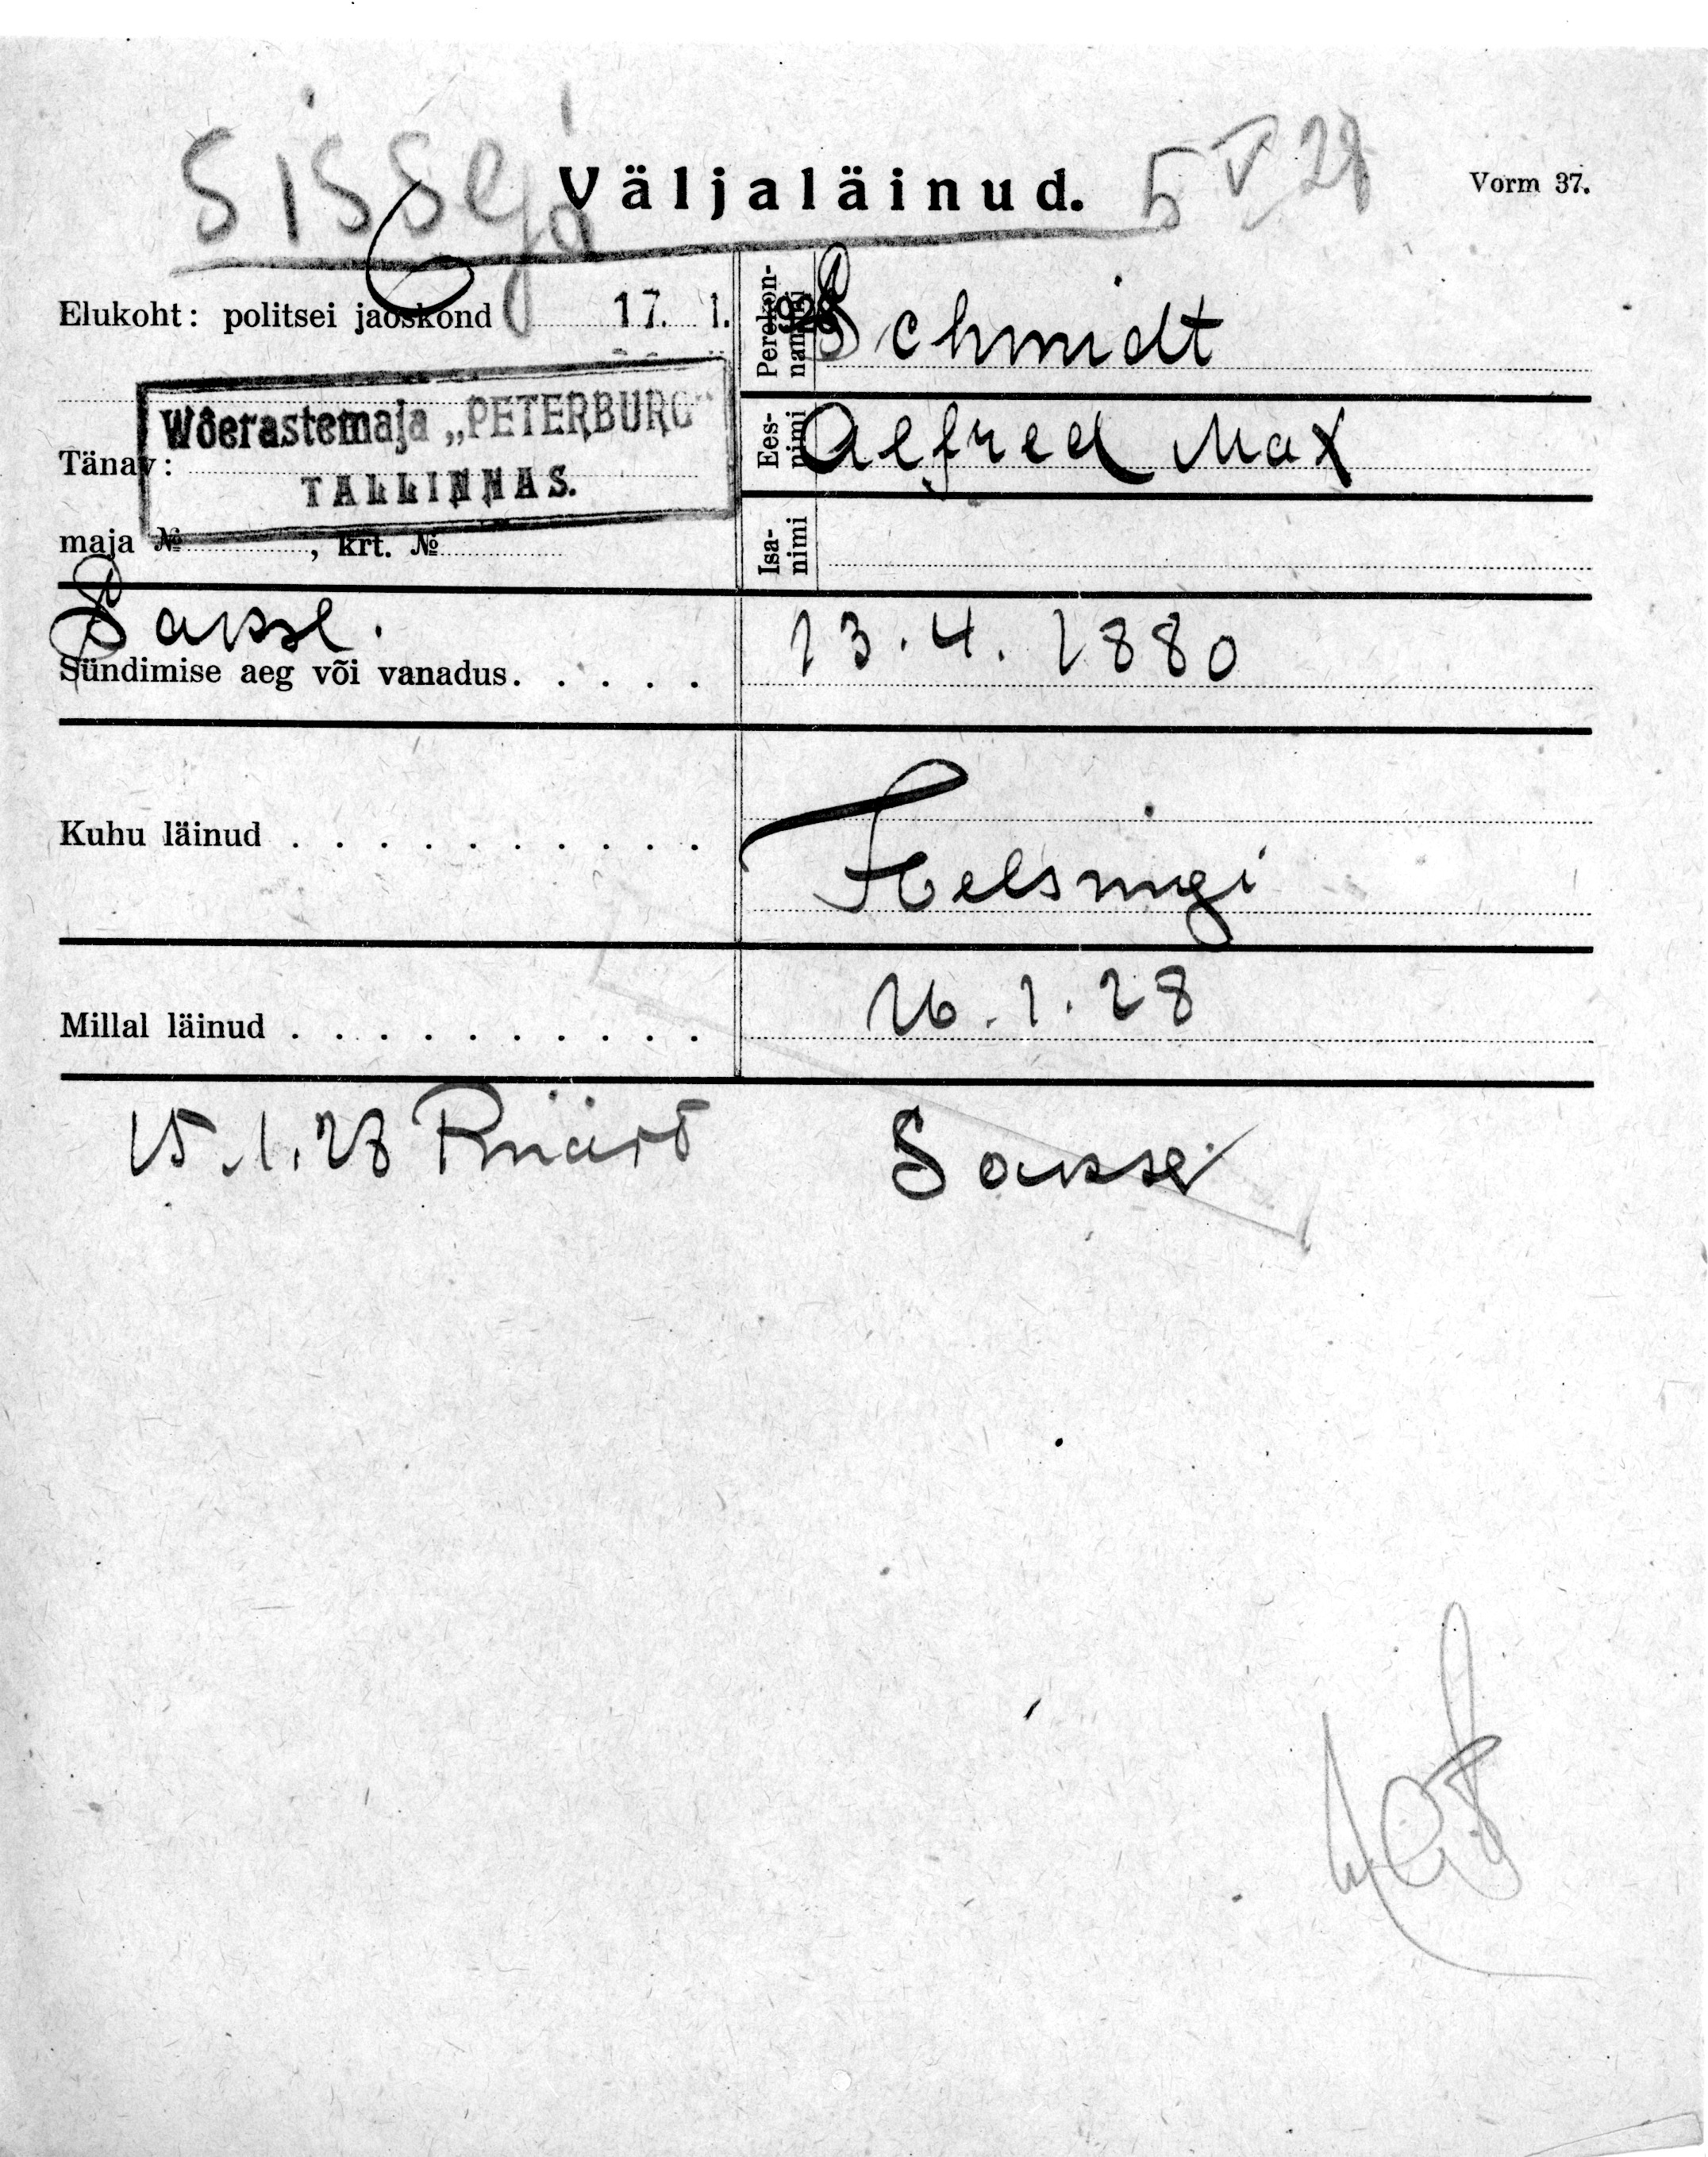 Sissej.
Väljaläinud. 5 V 28
Vorm 37.
Elukoht: politsei jaoskond 6 17. 1. 1928
Wõerastemaja „PETERBURG“
TALLINNAS.
Tänav:
maja № , krt. №
Perekon-
nanimi
Schmidt
Ees-
nimi
Alfred Max
Isa-
nimi
Saksl.
Sündimise aeg või vanadus. . . . . 13.4.1880
Kuhu läinud . . . . . . . . . . Helsingi
Millal läinud . . . . . . . . . . 16.1.28
15.1.28